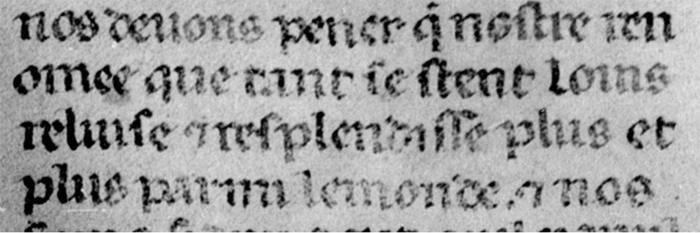 nos deuons pener q̃ nostre ren
omee que tant se stent loins
reluise ⁊ resplendisse plus et
plus parmi le monde. ⁊ nos